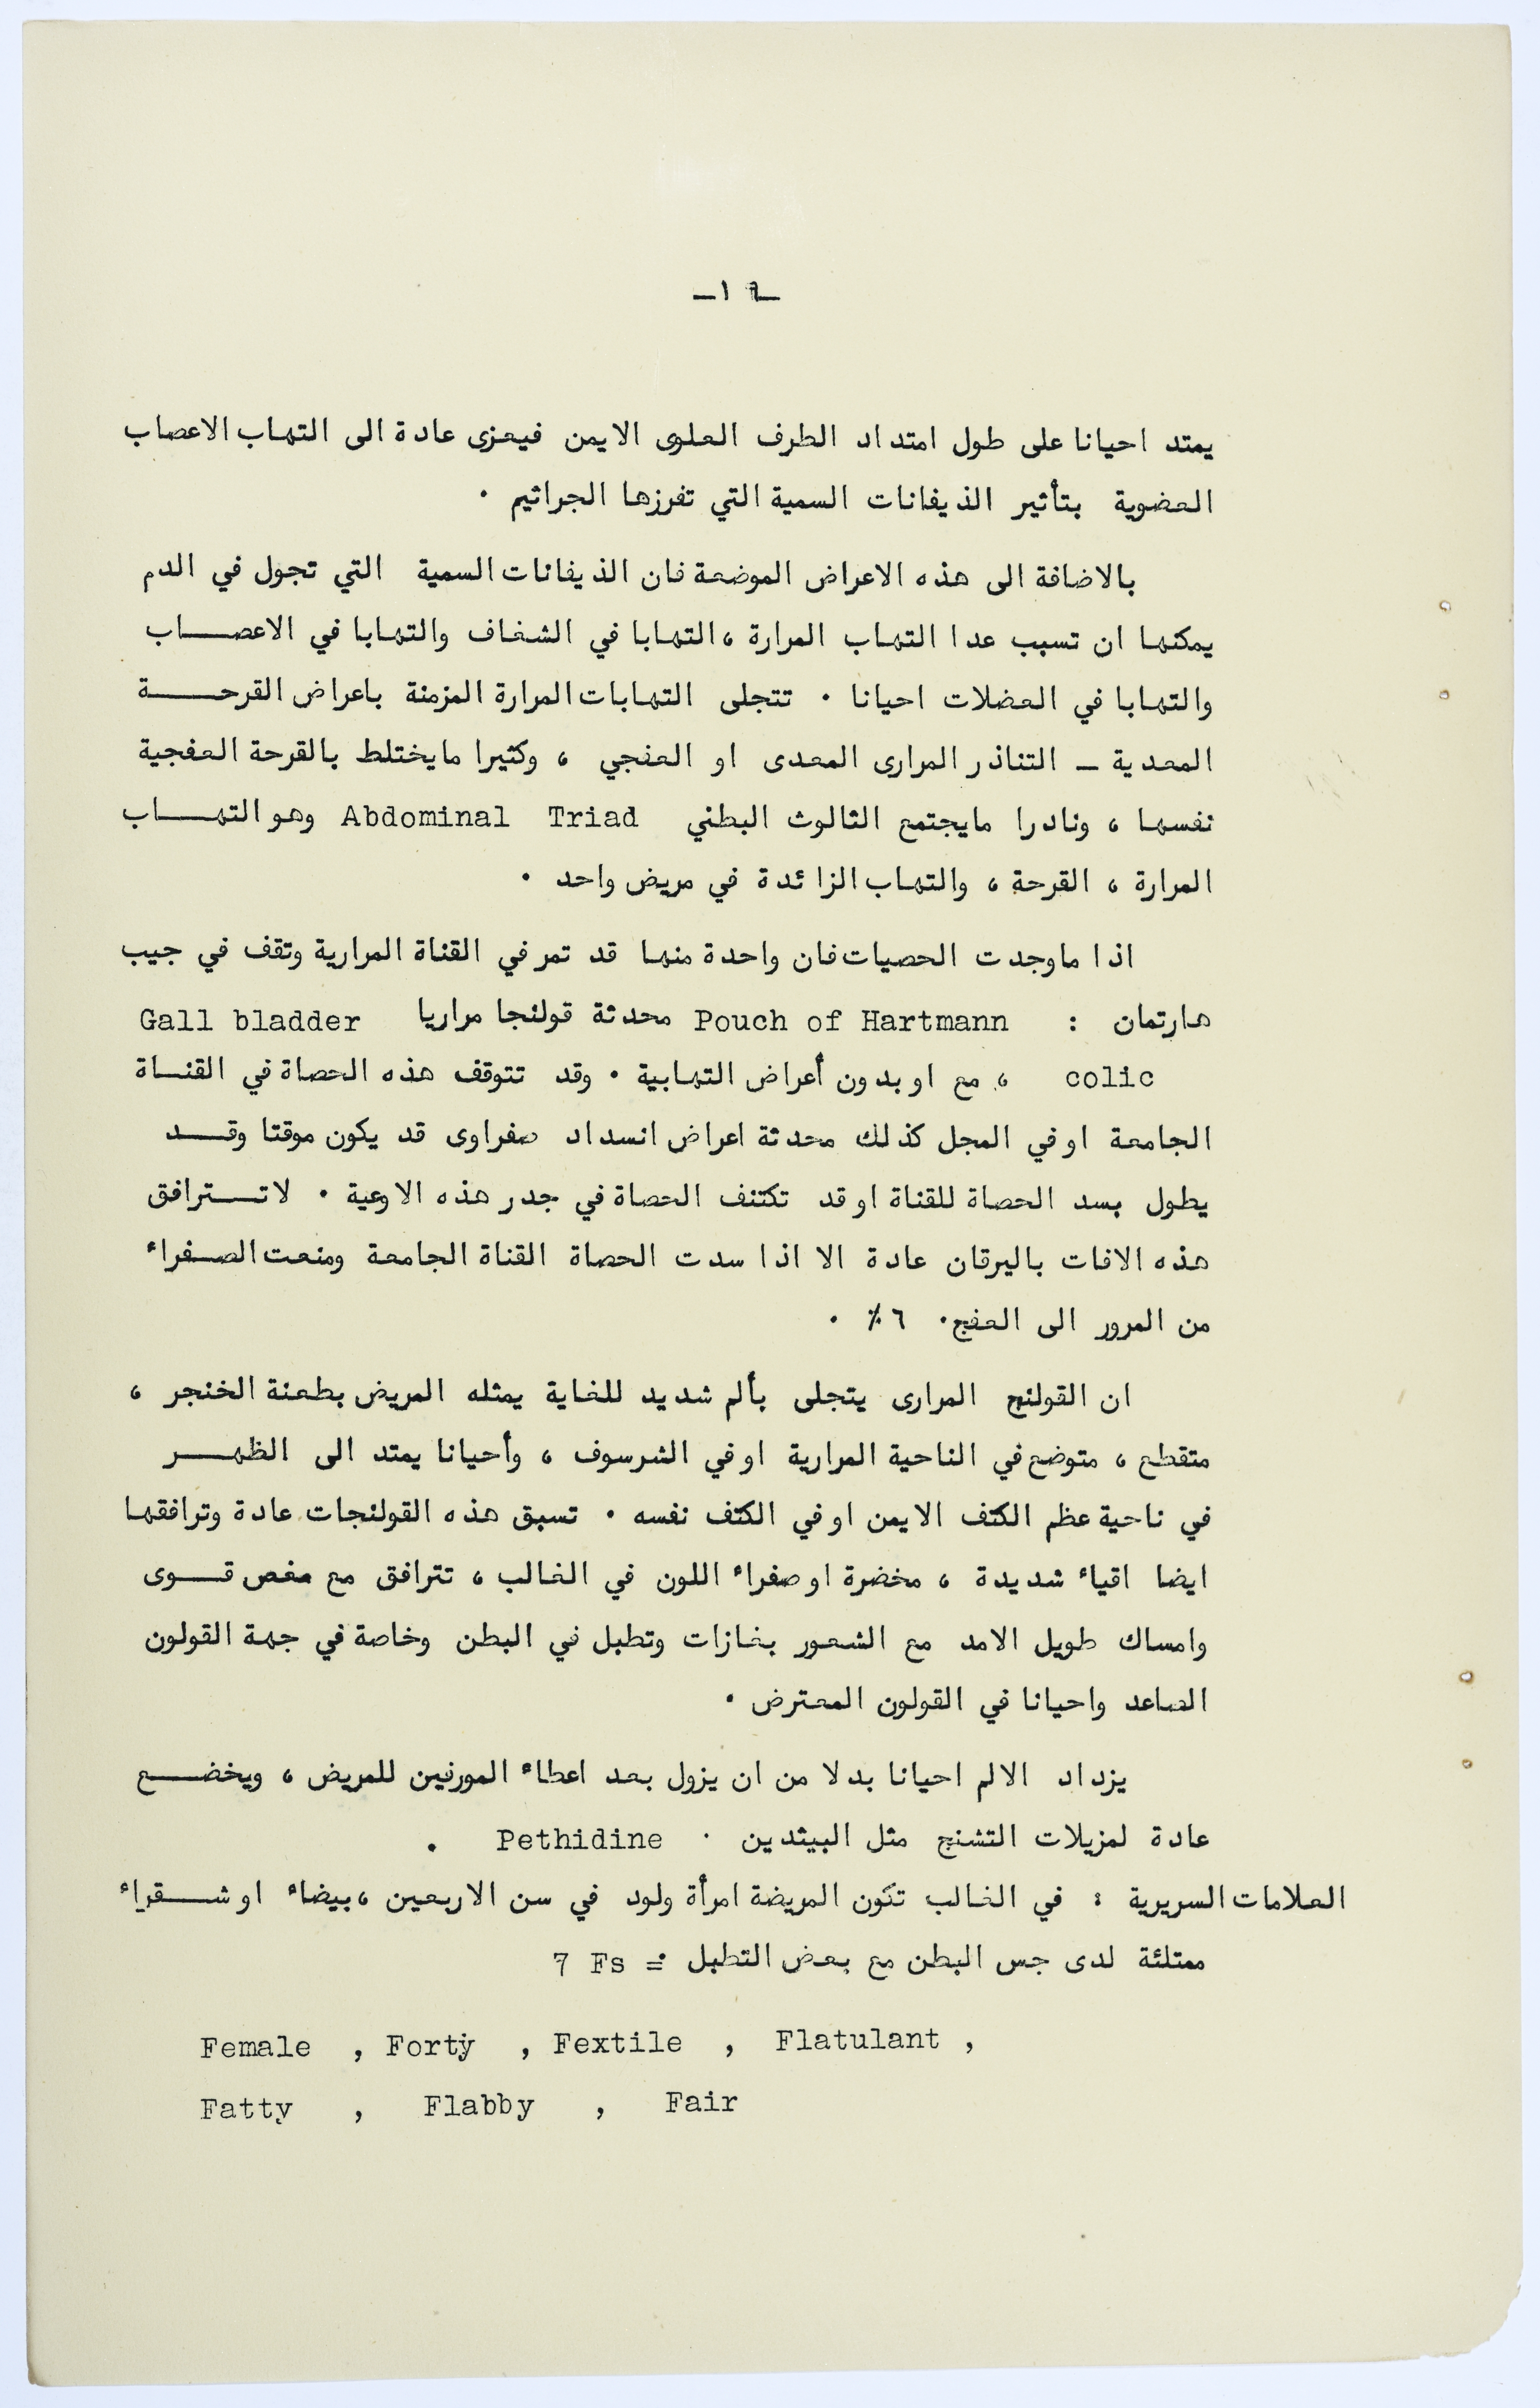 ـ١٦ـ
يمتد احيانا على طول امتداد الطرف العلوى الايمن فيعزى عادة الى التهاب الاعصاب
العضوية بتأثير الذيفانات السمية التي تفرزها الجراثيم .
بالاضافة الى هذه الاعراض الموضعة فان الذيفانات السمية التي تجول في الدم
يمكنها ان تسبب عدا التهاب المرارة ، التهابا في الشغاف والتهابا في الاعصـــاب
والتهابا في العضلات احيانا . تتجلى التهابات المرارة المزمنة باعراض القرحـــة
المعدية ـ التناذر المرارى المعدى او العفجي ، وكثيرا مايختلط بالقرحة العفجية
نفسها ، ونادرا مايجتمع الثالوث البطني Abdominal Triad وهو التهـــاب
المرارة ، القرحة ، والتهاب الزائدة في مريض واحد .
اذا ماوجدت الحصيات فان واحدة منها قد تمر في القناة المرارية وتقف في جيب
هارتمان : Pouch of Hartmann محدثة قولنجا مراريا Gall bladder
colic ، مع او بدون أعراض التهابية . وقد تتوقف هذه الحصاة في القنــاة
الجامعة او في المجل كذلك محدثة اعراض انسداد صفراوى قد يكون موقتا وقــد
يطول بسد الحصاة للقناة او قد تكتنف الحصاة في جدر هذه الاوعية . لاتـــترافق
هذه الافات باليرقان عادة الا اذا سدت الحصاة القناة الجامعة ومنعت الصــفراء
من المرور الى العفج . ٦٪ .
ان القولنج المرارى يتجلى بألم شديد للغاية يمثله المريض بطعنة الخنجر ،
متقطع ، متوضع في الناحية المرارية او في الشرسوف ، وأحيانا يمتد الى الظهـــر
في ناحية عظم الكتف الايمن او في الكتف نفسه . تسبق هذه القولنجات عادة وترافقها
ايضا اقياء شديدة ، مخضرة او صفراء اللون في الغالب ، تترافق مع مغص قــوى
وامساك طويل الامد مع الشعور بغازات وتطبل في البطن وخاصة في جهة القولون
الصاعد واحيانا في القولون المعترض .
يزداد الالم احيانا بدلا من ان يزول بعد اعطاء المورفين للمريض ، ويخضـــع
عادة لمزيلات التشنج مثل البيثدين . Pethidine .
العلامات السريرية : في الغالب تكون المريضة امرأة ولود في سن الاربعين ، بيضاء او شـــقراء
ممتلئة لدى جس البطن مع بعض التطبل = 7 Fs
Female , Forty , Fextile , Flatulant ,
Fatty , Flabby , Fair